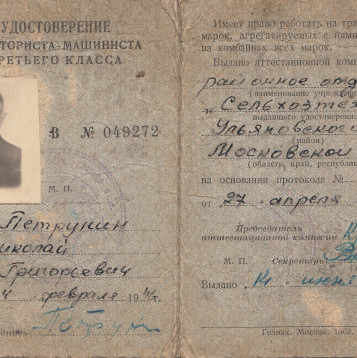 УДОСТОВЕРЕНИЕ
ТОРИСТА-МАШИНИСТА
РЕТЬЕГО КЛАССА
В № 049272
М. П.
Петрунин
иколай
Григорьевич
февраля 194
Петрун
Имеет право работать на тра
марок, агрегатируемых с ними
на комбайнах всех марок.
Выдано аттестационной ком
районное отд
(наименование учрежд
Сельхозтех
выдавшего удостоверение
Ульяновского
(район)
Московской
(область, край, республик
на основании протокола №
от 27 апреля
Председатель
аттестационной комиссии
М. П. Секретарь
Выдано 14 июня
Гознак. Москва.